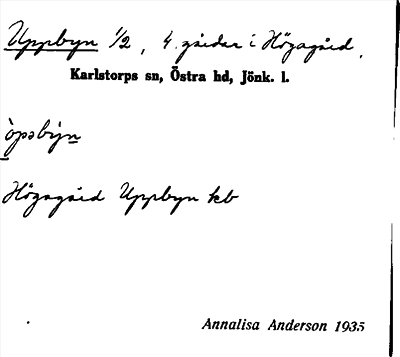 Uppbyn 1/2, 4 gårdar i Högagård.
Karlstorps sn, Östra hd, Jönk. l.
òpsbýn
Högagård Uppbyn kb
Annalisa Anderson 1935